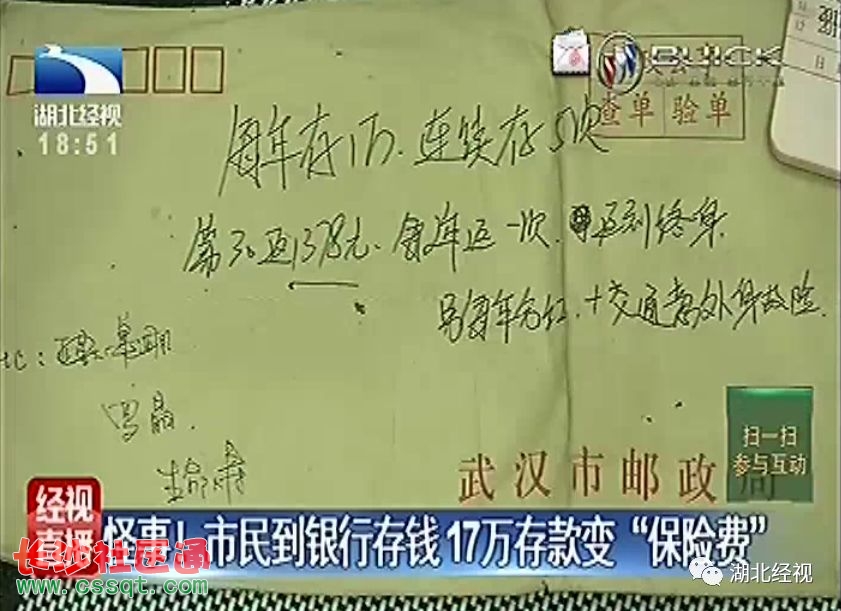 湖北经视
18:51
BUICK
查单 验单
每年存1万、连续存5次
返1378元、每年返一次、返到终身
另每年分红、+交通意外身故险.
扫一扫
参与互动
武汉市邮政局
经视
直播
怪事!市民到银行存钱 17万存款变“保险费”
长沙社区通
www.cssqt.com
湖北经视